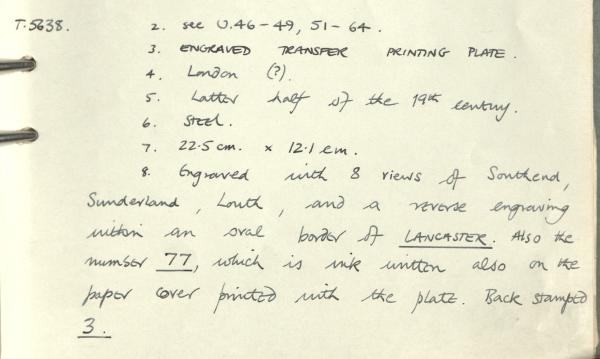 T.5638. 2. see U.46-49, 51-64.
3. ENGRAVED TRANSFER PRINTING PLATE.
4. London (?).
5. Latter half of the 19th century.
6. Steel.
7. 22.5 cm. x 12.1 cm.
8. Engraved with 8 views of Southend,
Sunderland, Louth, and a reverse engraving
within an oval border of LANCASTER. Also the
number 77, which is ink written also on the
paper cover printed with the plate. Back stamped
3.